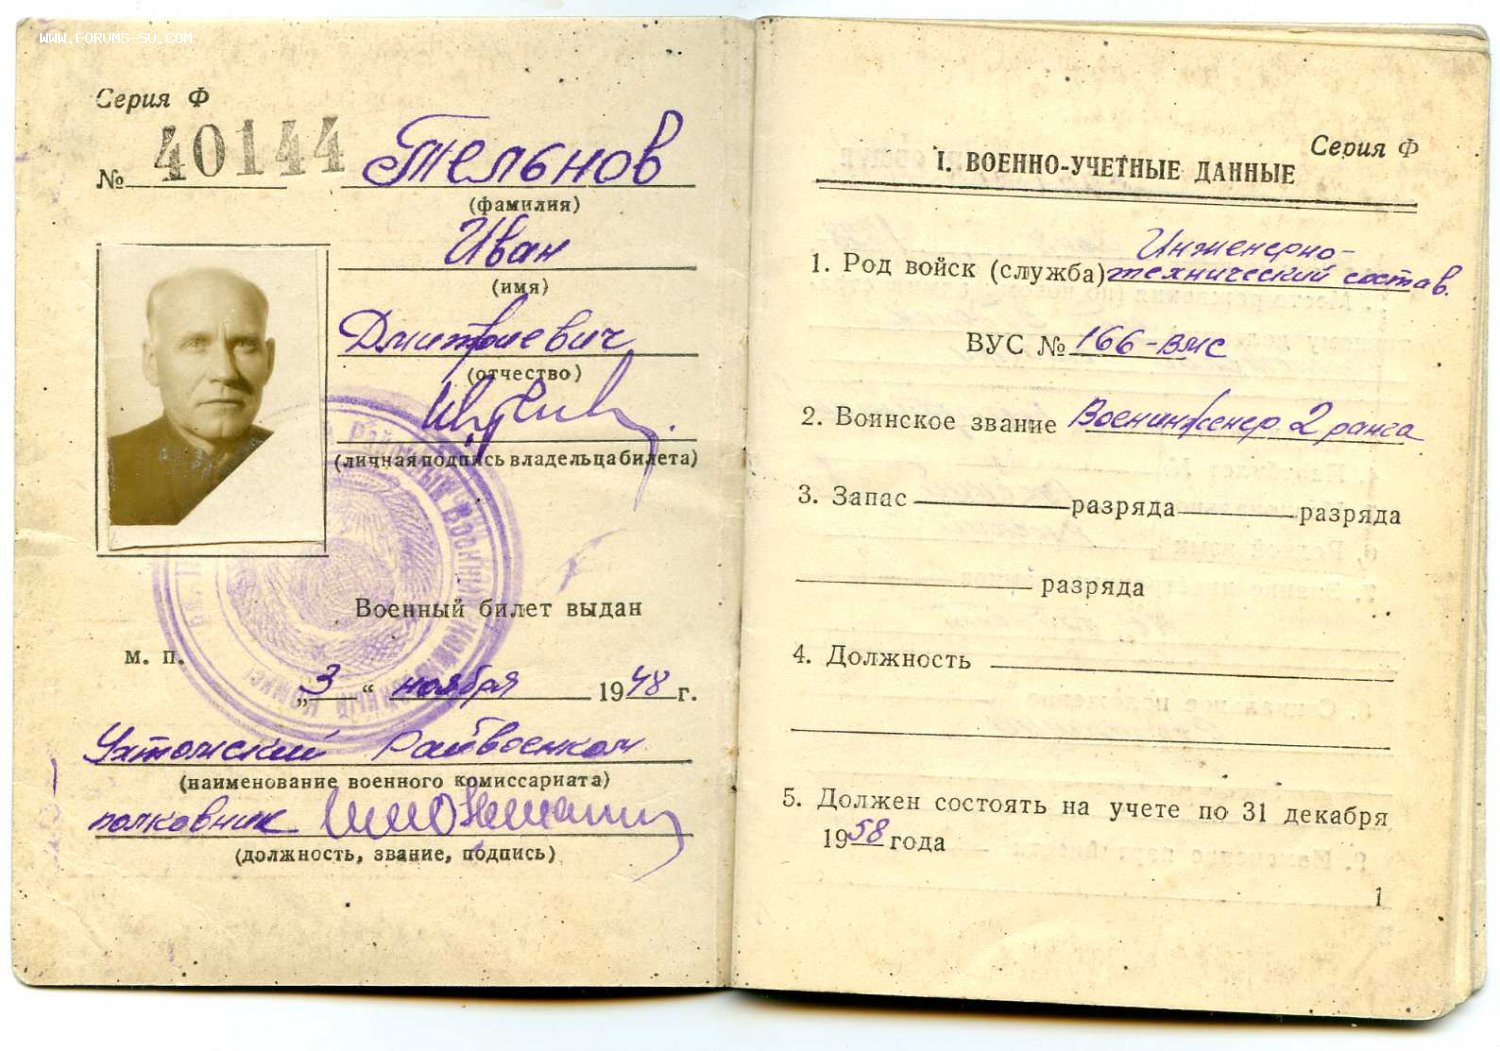 WWW.FORUMS-SU.COM
Серия Ф
№ 40144
Тельнов
(фамилия)
Иван
(имя)
Дмитриевич
(отчество)
(личная подпись владельца билета)
Военный билет выдан
м. п.
„3“ ноября 1948 г.
Ухтомский Райвоенком
(наименование военного комиссариата)
полковник
(должность, звание, подпись)
Серия Ф
I. ВОЕННО-УЧЕТНЫЕ ДАННЫЕ
1. Род войск (служба) Инженерно-
технический состав.
ВУС № 166-ВМС
2. Воинское звание Военинженер 2 ранга
3. Запас разряда разряда
разряда
4. Должность
5. Должен состоять на учете по 31 декабря
1958 года
1